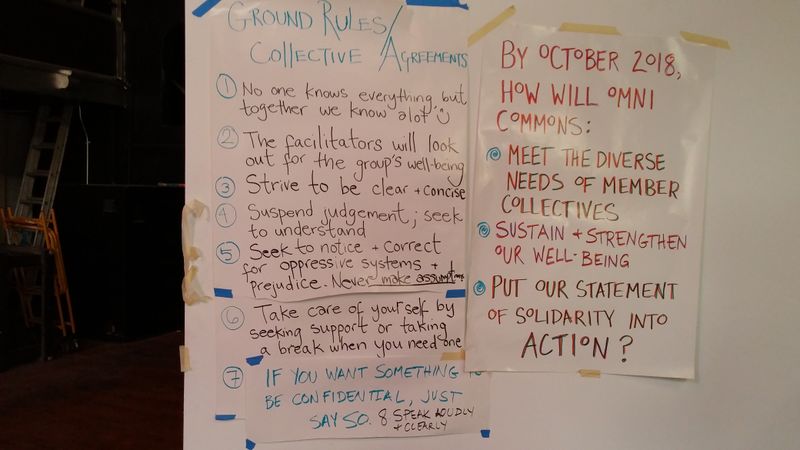 GROUND RULES/
COLLECTIVE AGREEMENTS
① No one knows everything but
together we know alot
② The facilitators will look
out for the group's well-being
③ Strive to be clear + concise
④ Suspend judgement; seek
to understand
⑤ Seek to notice + correct
for oppressive systems +
prejudice. Never make assumptions
⑥ Take care of yourself by
seeking support or taking
a break when you need one
⑦ IF YOU WANT SOMETHING TO
BE CONFIDENTIAL, JUST
SAY SO. 8 SPEAK LOUDLY
+ CLEARLY
BY OCTOBER 2018,
HOW WILL OMNI
COMMONS:
MEET THE DIVERSE
NEEDS OF MEMBER
COLLECTIVES
SUSTAIN + STRENGTHEN
OUR WELL-BEING
PUT OUR STATEMENT
OF SOLIDARITY INTO
ACTION?